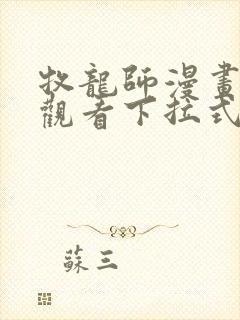 牧龍師漫畫
觀看下拉式
蘇三